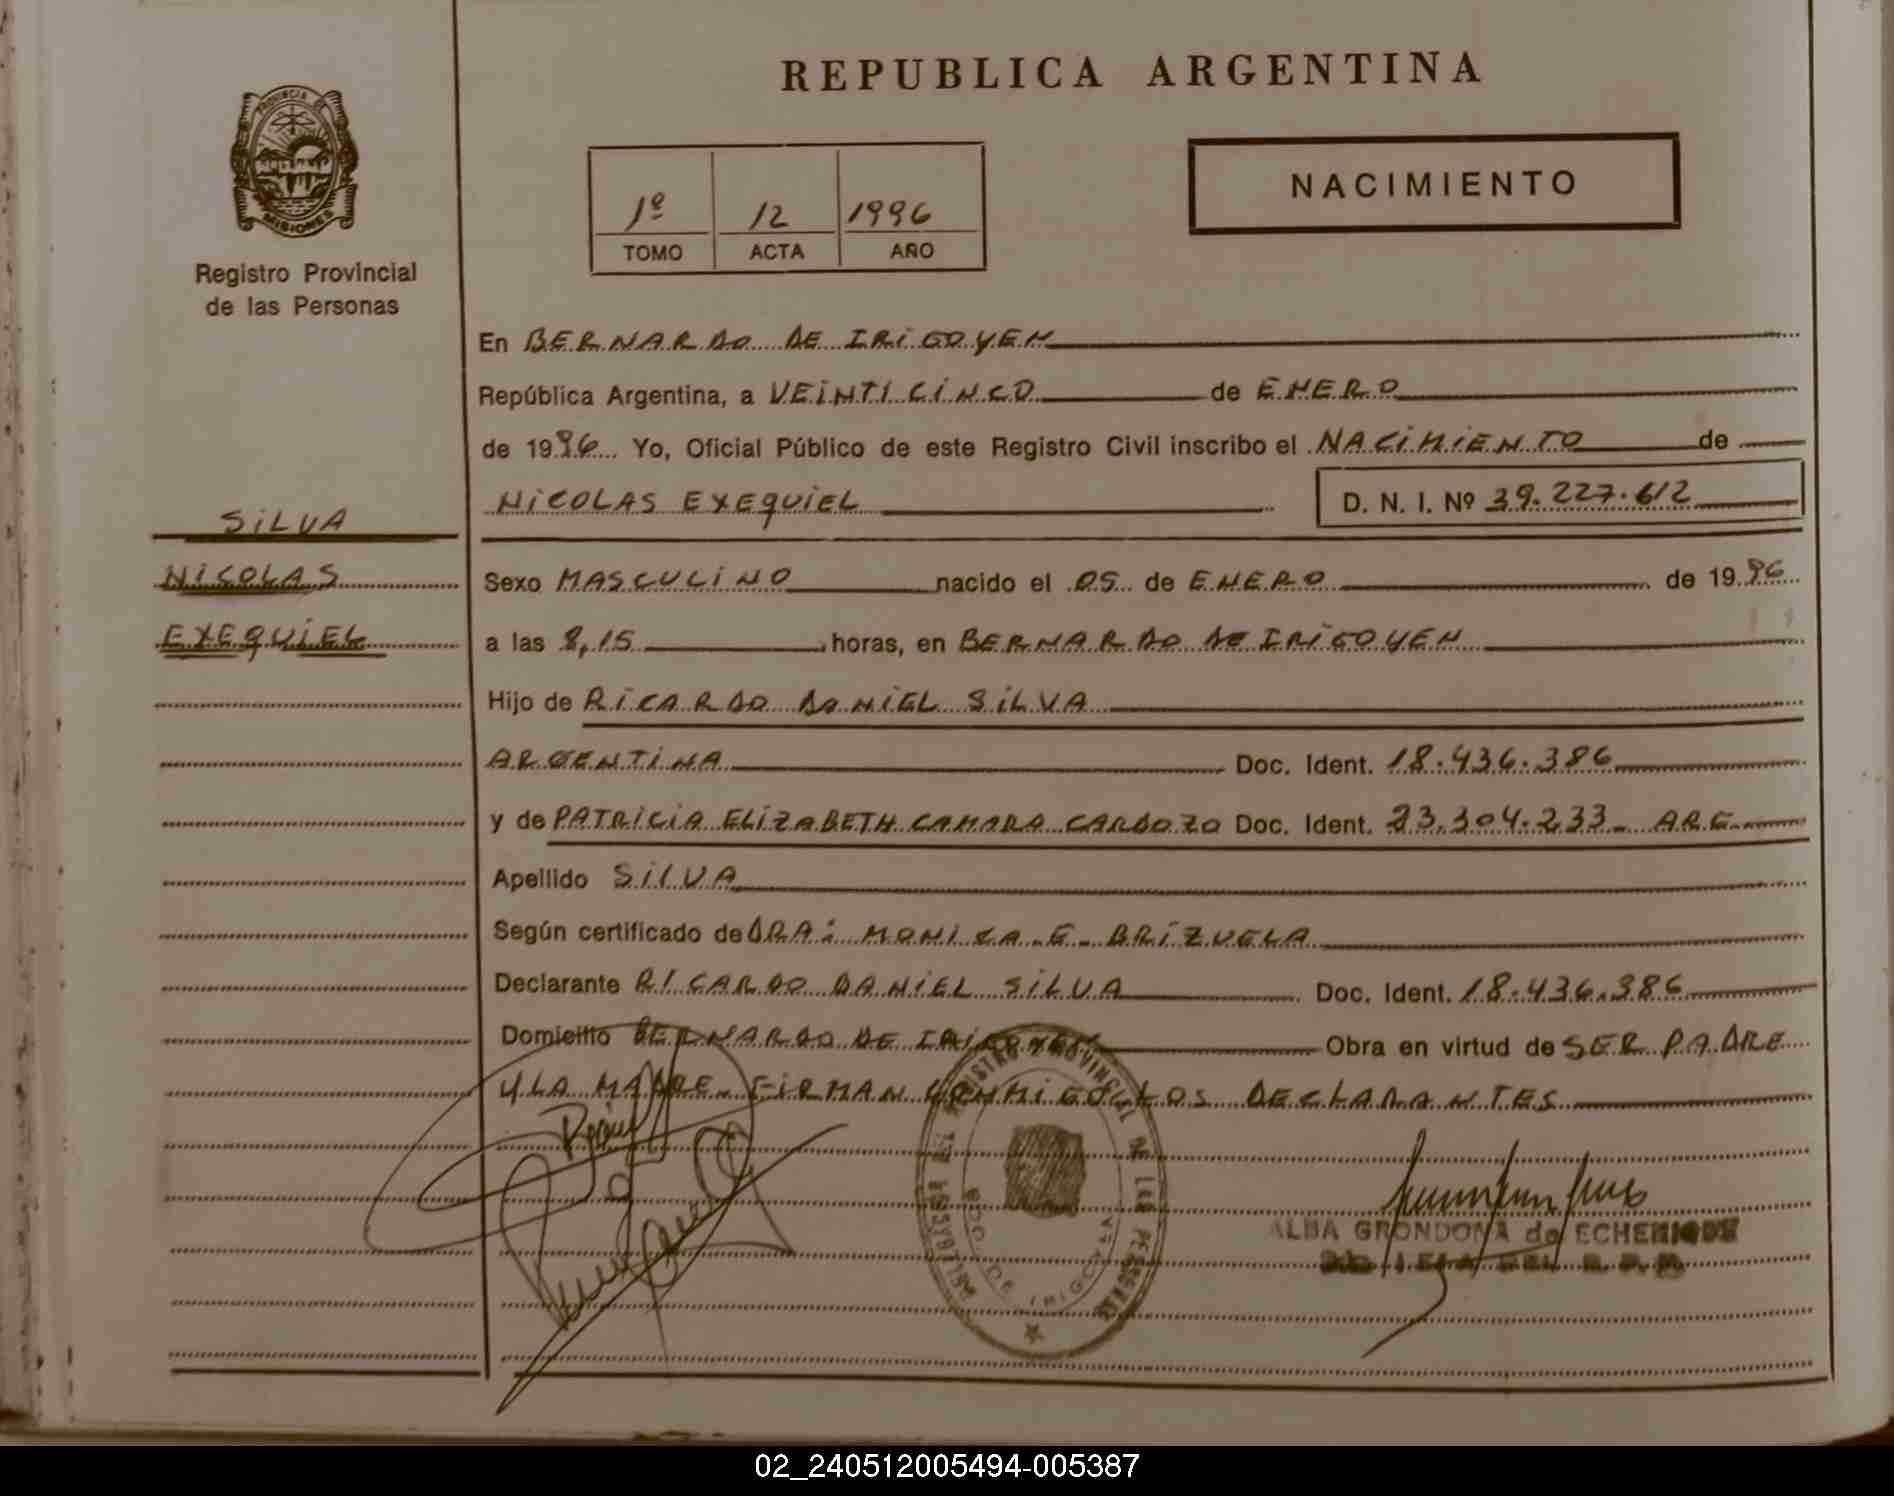 REPUBLICA ARGENTINA
PROVINCIA DE
MISIONES
Registro Provincial
de las Personas
1º 12 1996
TOMO ACTA AÑO
NACIMIENTO
En BERNARDO DE IRIGOYEN
República Argentina, a VEINTICINCO de ENERO
de 1996 Yo, Oficial Público de este Registro Civil inscribo el NACIMIENTO de
SILVA
NICOLAS EXEQUIEL D. N. I. Nº 39.227.612
NICOLAS
Sexo MASCULINO nacido el 05 de ENERO de 1996
EXEQUIEL
a las 8,15 horas, en BERNARDO DE IRIGOYEN
Hijo de RICARDO DANIEL SILVA
ARGENTINA Doc. Ident. 18.436.386
y de PATRICIA ELIZABETH CAMARA CARDOZO Doc. Ident. 23.304.233 - ARG.
Apellido SILVA
Según certificado de DRA: MONICA E. BRIZUELA
Declarante RICARDO DANIEL SILVA Doc. Ident. 18.436.386
Domicilio BERNARDO DE IRIGOYEN Obra en virtud de SER PADRE
Y LA MADRE. FIRMAN CONMIGO LOS DECLARANTES
REGISTRO PROVINCIAL DE LAS PERSONAS
BDO. DE IRIGOYEN
ALBA GRONDONA de ECHENIQUE
02_240512005494-005387